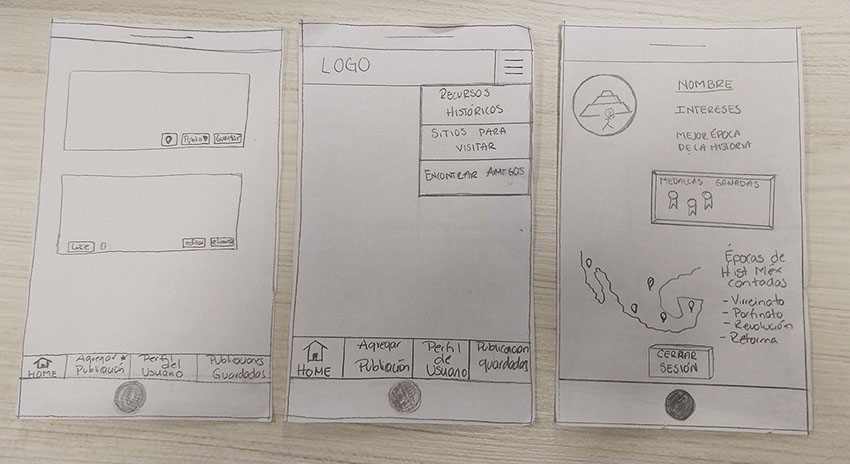 Guardar
Like 0
editar
HOME
Agregar
Publicación
Perfil
del
Usuario
Publicaciones
Guardadas
LOGO
RECURSOS
HISTÓRICOS
SITIOS PARA
VISITAR
ENCONTRAR AMIGOS
HOME
Agregar
Publicación
Perfil
de
Usuario
Publicacion
guardadas
NOMBRE
INTERESES
MEJOR ÉPOCA
DE LA HISTORIA
MEDALLAS GANADAS
Épocas de
Hist Méx
contadas
- Virreinato
- Porfiriato
- Revolución
- Reforma
CERRAR
SESIÓN